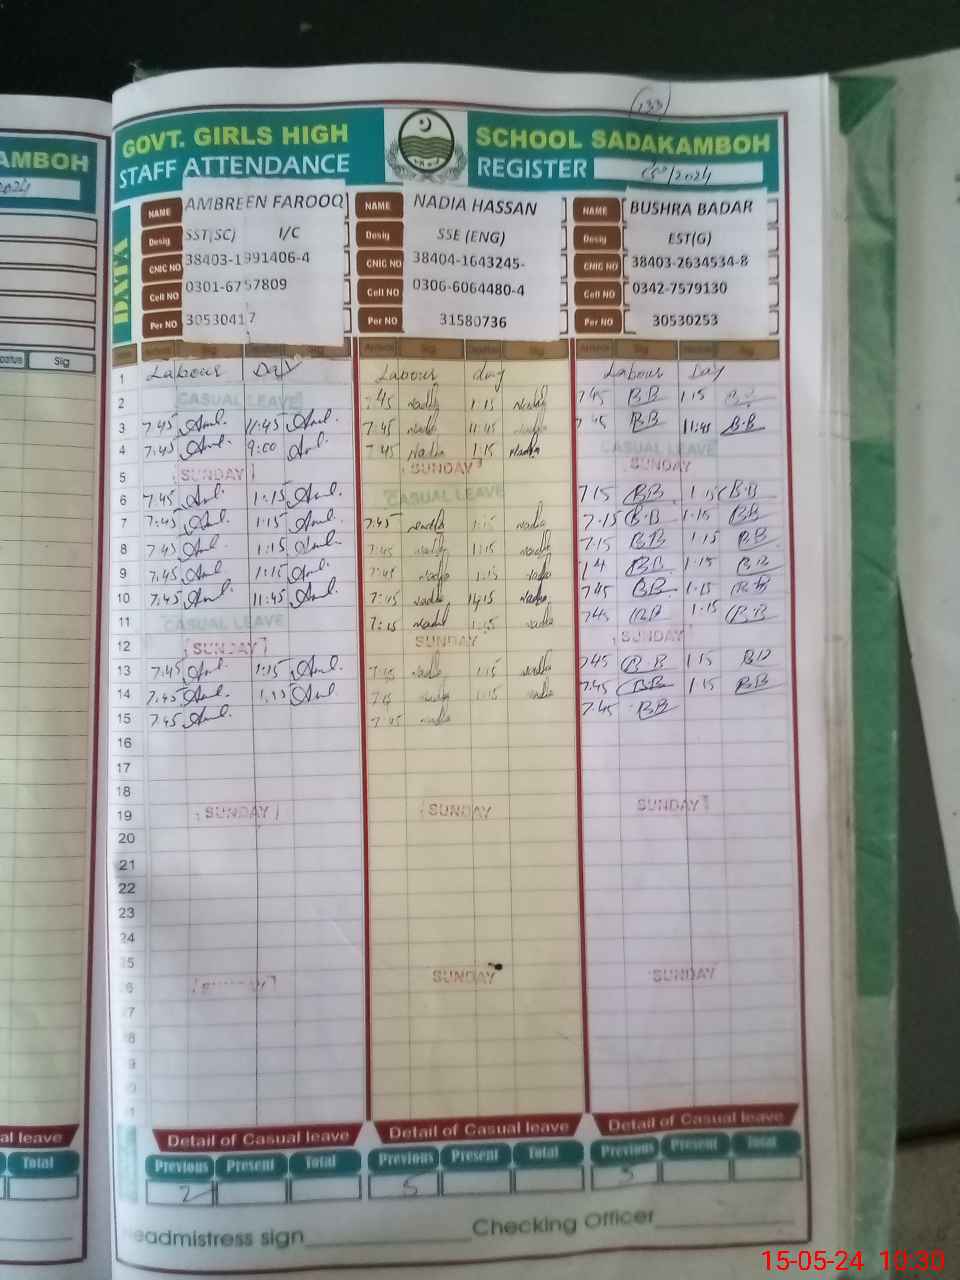 133
GOVT. GIRLS HIGH SCHOOL SADAKAMBOH
STAFF ATTENDANCE REGISTER /2024
AMBOH
2024
DATA
NAME AMBREEN FAROOQ NAME NADIA HASSAN NAME BUSHRA BADAR
Desig SST(SC) I/C Desig SSE (ENG) Desig EST(G)
CNIC NO 38403-1991406-4 CNIC NO 38404-1643245- CNIC NO 38403-2634534-8
Cell NO 0301-6757809 Cell NO 0306-6064480-4 Cell NO 0342-7579130
Per NO 30530417 Per NO 31580736 Per NO 30530253
Sig
1 Labour Day Labour day Labour Day
2 CASUAL LEAVE 7:45 Nadia 1:15 Nadia 7 45 BB 1 15 BB
3 7:45 11:45 7:45 Nadia 11:45 Nadia 7 45 BB 11:45 BB
4 7:45 9:00 7 45 Nadia 1:15 Nadia CASUAL LEAVE
5 SUNDAY SUNDAY SUNDAY
6 7:45 1:15 CASUAL LEAVE 7 15 BB 1 15 BB
7 7:45 1:15 7:45 Nadia 1:15 Nadia 7.15 BB 1.15 BB
8 7 45 1:15 7:45 Nadia 1:15 Nadia 7:15 BB 1 15 BB
9 7:45 1:15 7:45 Nadia 1:15 Nadia BB 1.15 BB
10 7:45 11:45 7:45 Nadia Nadia 7:45 BB 1.15 BB
11 CASUAL LEAVE 7:15 Nadia 1:15 Nadia 745 BB 1.15 BB
12 SUNDAY SUNDAY SUNDAY
13 7:45 1:15 Nadia 1:15 Nadia 745 BB 1 15 BB
14 7:45 1:15 Nadia 1:15 Nadia 7.45 BB 1.15 BB
15 7:45 7:45 Nadia 7.45 BB
16
17
18
19 SUNDAY SUNDAY SUNDAY
20
21
22
23
24
25
26 SUNDAY SUNDAY
Detail of Casual leave Detail of Casual leave Detail of Casual leave
Previous Present Total Previous Present Total Previous Present Total
2 5 3
al leave
Total
eadmistress sign Checking Officer
15-05-24 10:30